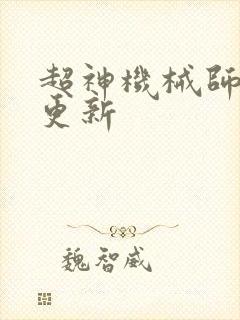 超神機械師
更新
魏智威